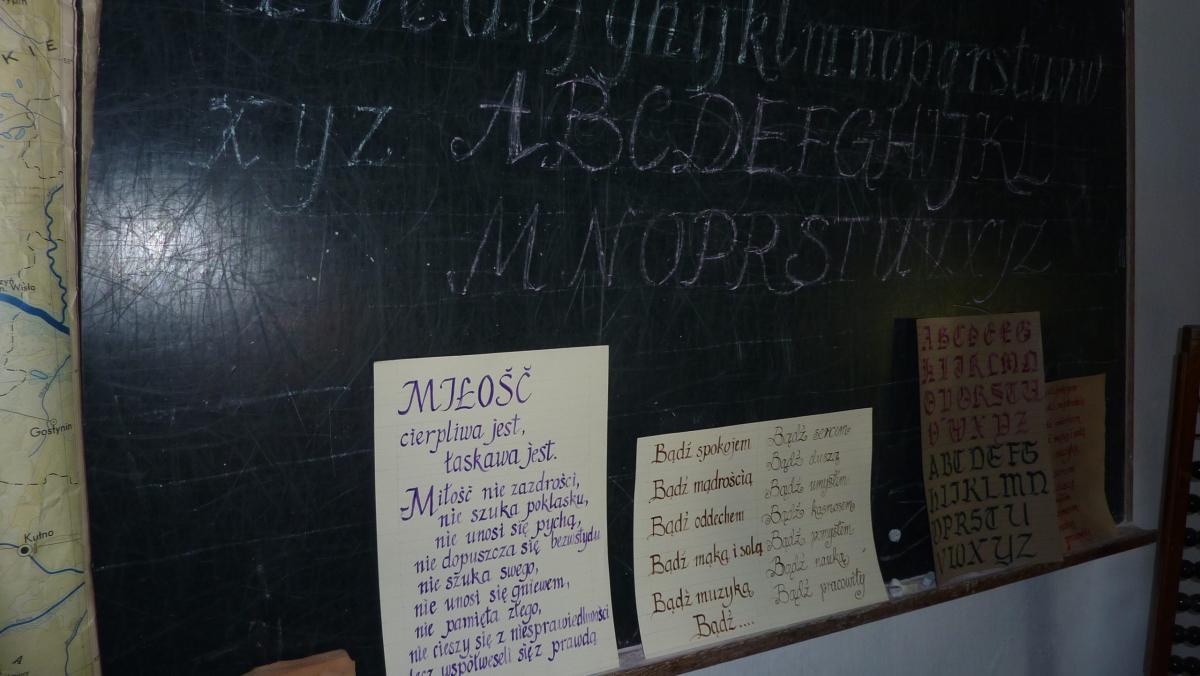 K I E
Gostynin
Kutno
defghijklmnopqrstuvw
xyz ABCDEFGHIJKL
MNOPRSTUWXYZ
MIŁOŚĆ
cierpliwa jest,
łaskawa jest.
Miłość nie zazdrości,
nie szuka poklasku,
nie unosi się pychą,
nie dopuszcza się bezwstydu
nie szuka swego,
nie unosi się gniewem,
nie pamięta złego,
nie cieszy się z niesprawiedliwości
lecz współweseli się z prawdą
Bądź spokojem
Bądź mądrością
Bądź oddechem
Bądź mąką i solą
Bądź muzyką
Bądź ....
Bądź sercem
Bądź duszą
Bądź umysłem
Bądź kosmosem
Bądź pomysłem
Bądź nauką
Bądź pracowity
ABCDEFG
HIJKLMN
OPQRSTU
VWXYZ
ABCDEFG
HIJKLMN
OPRSTU
VWXYZ